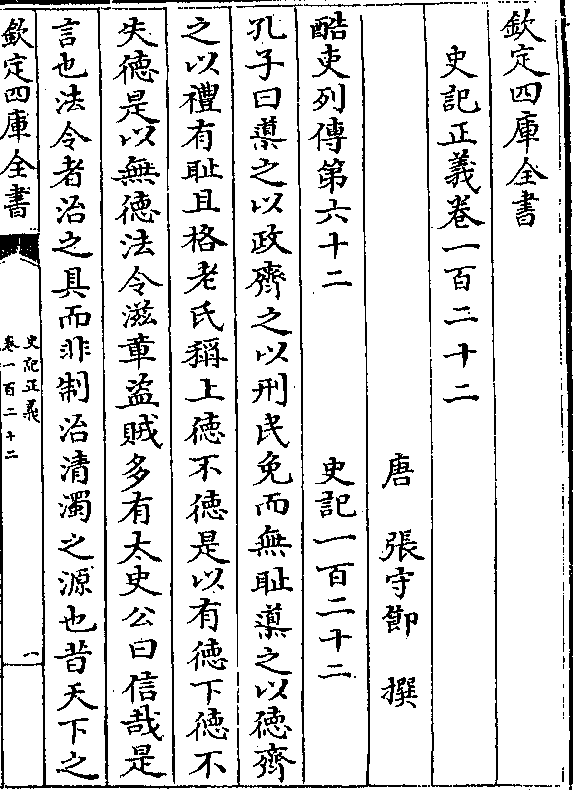 欽定四庫全書
史記正義卷一百二十二
唐 張守節 撰
酷吏列傳第六十二 史記一百二十二
孔子曰導之以政齊之以刑民免而無恥導之以徳齊
之以禮有恥且格老氏稱上徳不徳是以有徳下徳不
失徳是以無徳法令滋章盗賊多有太史公曰信哉是
言也法令者治之具而非制治清濁之源也昔天下之
欽定四庫全書
史記正義
卷一百二十二
一